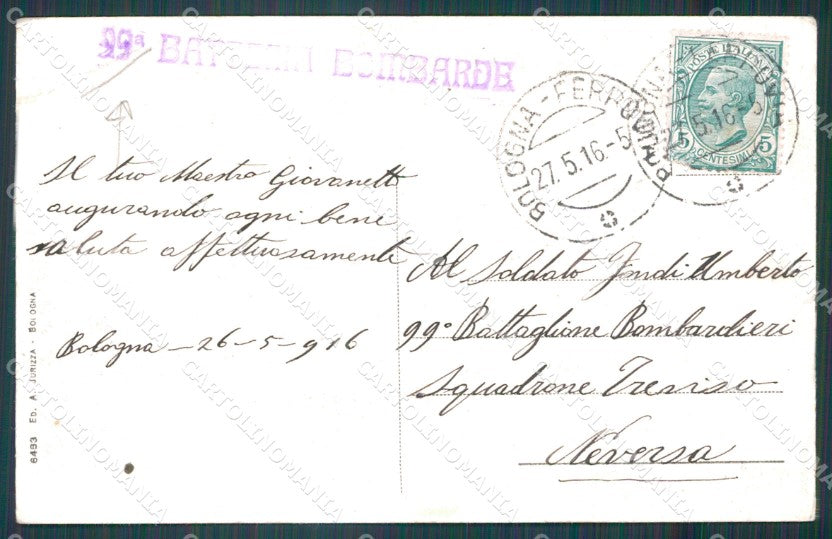 99ª BATTERIA BOMBARDE
BOLOGNA - FERROVIA
27.5.16-5
POSTE ITALIANE
CENTESIMI
5 5
Il tuo Maestro Giovanetti
augurando ogni bene
saluta affettuosamente
Bologna - 26-5-916
Al Soldato Jndi Umberto
99º Battaglione Bombardieri
Squadrone Treviso
Neversa
6493 ED. A. JURIZZA - BOLOGNA
CARTOLINOMANIA